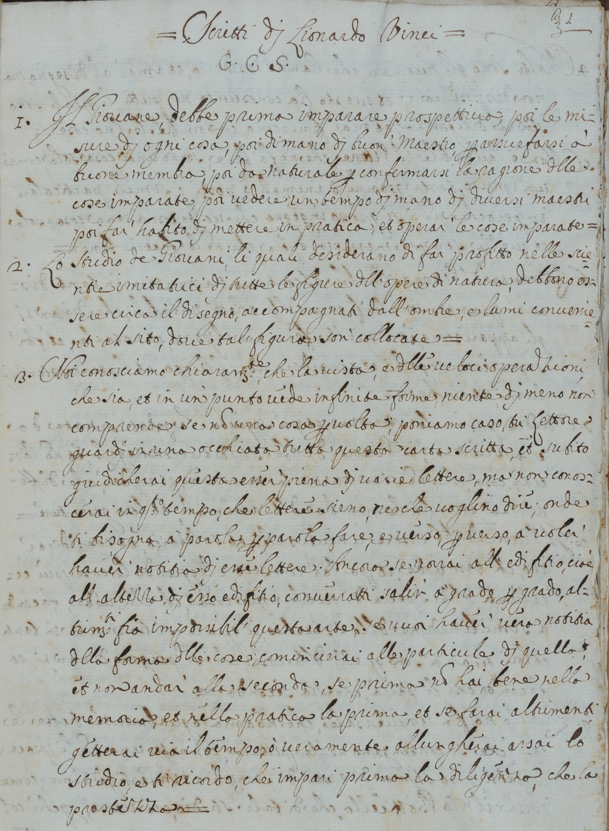 31
= Scritti dj Lionardo Vinci =
G. C. S.
1. Il Giovane, debbe prima imparare prospettiva, poi le mi-
sure dj ogni cosa, poi di mano dj buon Maestro p assuefarsi à
buone membra, poi da naturale p confermarsi la ragione delle
cose imparate, poi vedere un tempo dj mano dj diversi maestri
poi far habito dj mettere in pratica, et operar le cose imparate =
2. Lo studio de Giovani, li quali desiderano di far profitto nelle scie-
ntie imitatrici dj tutte le figure dell'opere di natura, debbono es-
sere circa il disegno, accompagnati dall'ombre, e lumi convenie-
nti al sito, dove tali figure son collocate =
3. Noi conosciamo chiaram.te che la vista, e delle veloci operazioni
che sia, et in un punto vede infinite forme, niente dj meno non
comprende se nō una cosa p volta; poniamo caso, tu lettore
guardj in una occhiata tutta questa carta scritta, et subito
giudicherai questa esser piena dj varie lettere, ma non conos-
cerai in q.to tempo, che lettere sieno, ne che voglino dire; onde
ti bisogna à parola, p parola fare, e verso p verso, à voler
haver notitia dj esse lettere. Ancora se vorrai all'edifitio, cioè
all'altezza dj esso edifitio, converratti salir à grado p grado, al-
trim.ti fia impossibil questa arte. Se vuoi haver vera notitia
della forma delle cose, comincierai alle particule dj quelle,
et non andar alla seconda, se prima nō hai bene nella
memoria, et nella pratica la prima, et se farai altrimenti
getterai via il tempo, ò veramente allungherai assai lo
studio, e ti ricordo, che impari prima la diligenza, che la
prestezza =